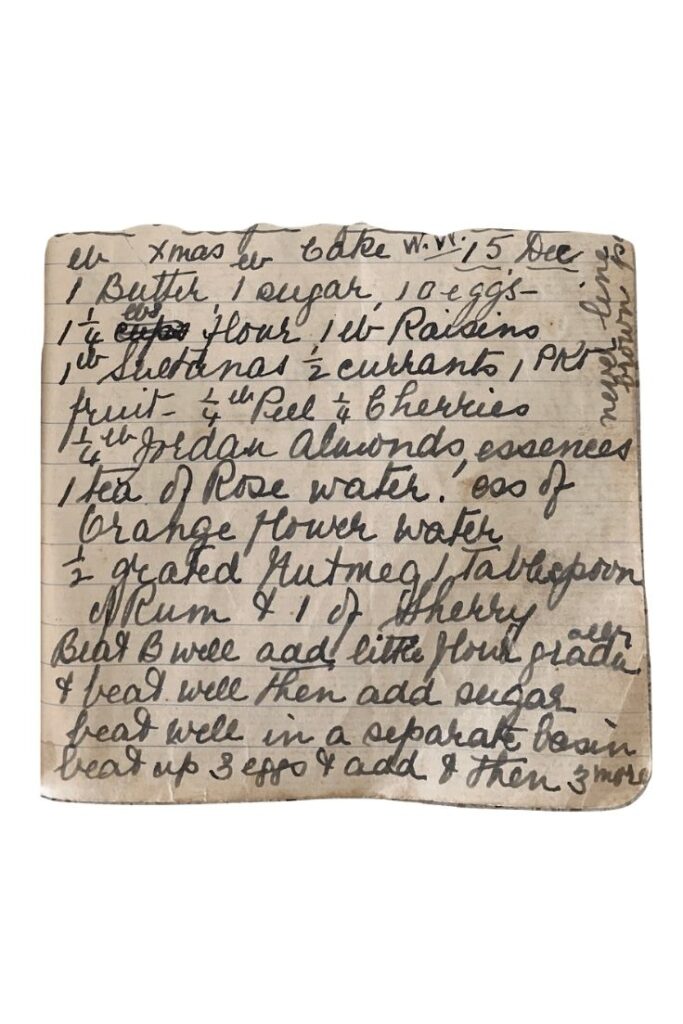 Xmas Cake W.W. 15 Dec
lb lb
1 Butter, 1 sugar, 10 eggs-
lbs
1 1/4 cups flour 1 lb Raisins
1 lb Sultanas 1/2 currants, 1 PKT
fruit- 1/4 lb Peel 1/4 Cherries
1/4 lb Jordan Almonds, essences
1 tea of Rose water. ess of
Orange flower water
1/2 grated Nutmeg, 1 Tablespoon
of Rum & 1 of Sherry
Beat B well add little flour gradually
& beat well then add sugar
beat well in a separate basin
beat up 3 eggs & add & then 3 more
never line
brown